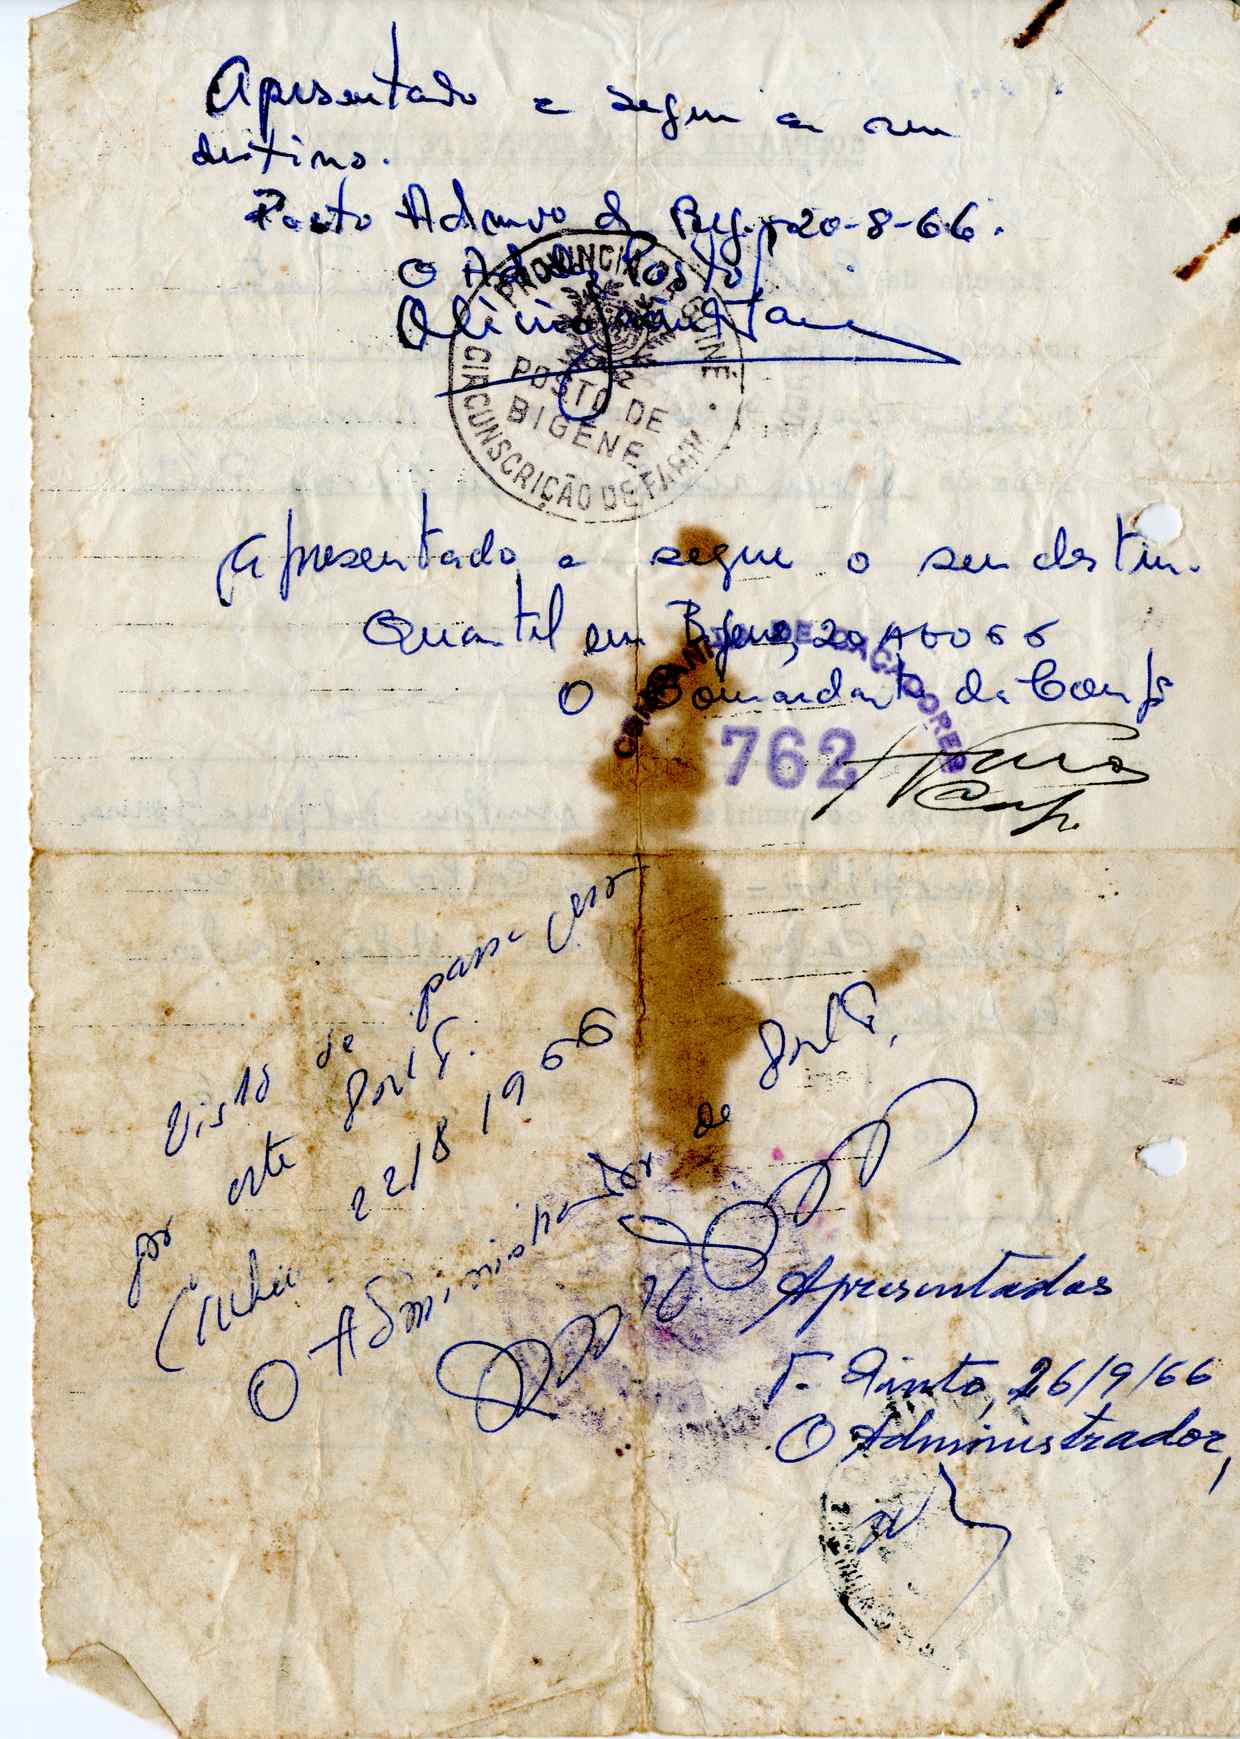 Apresentado e segue a seu
destino.
Posto Admvo de 20-8-66.
O Posto
PROVINCIA DA GUINÉ
POSTO DE
BIGENE
CIRCUNSCRIÇÃO DE FARIM
Apresentado e segue o seu destin.
Quartel em Bigene, 20 AGO 66
O Comandante da Comp
COMPANHIA DE CAÇADORES
762
Visto de passa
por este Posto.
22/8/1966
O Administrador de Posto,
Apresentados
T. Pinto, 26/9/66
O Administrador,